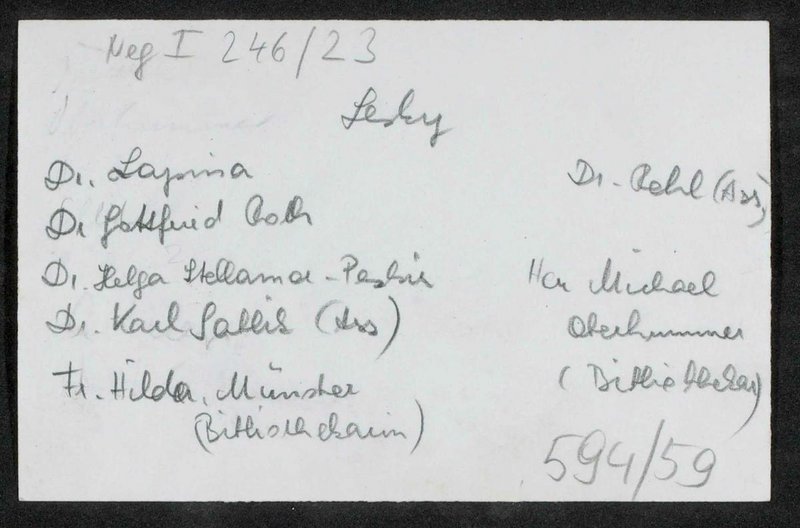 Neg I 246/23
Lesky
Dr. Lapina
Dr. Gottfried Roth
Dr. Helga Stellamor-
Dr. Karl Sablik (Ass)
Fr. Hilda Münster
(Bibliothekarin)
Dr. (Ass)
Herr Michael
Oberhummer
(Bibliothekar)
594/59